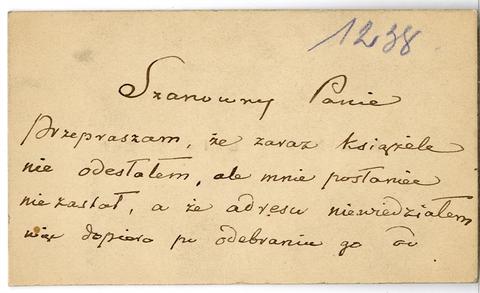 1238
Szanowny Panie
Przepraszam, że zaraz książele
nie odesłałem, ale mnie posłaniec
nie zastał, a że adresu niewiedziałem
więc dopiero po odebraniu go